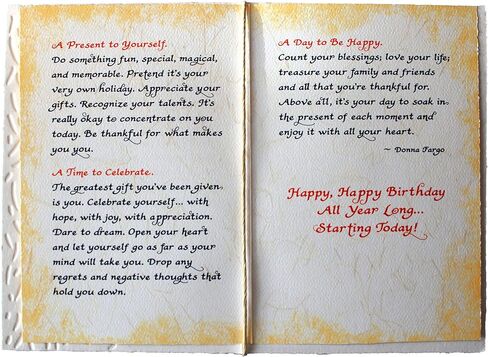 A Present to Yourself.
Do something fun, special, magical,
and memorable. Pretend it's your
very own holiday. Appreciate your
gifts. Recognize your talents. It's
really okay to concentrate on you
today. Be thankful for what makes
you you.
A Time to Celebrate..
The greatest gift you've been given
is you. Celebrate yourself... with
hope, with joy, with appreciation.
Dare to dream. Open your heart
and let yourself go as far as your
mind will take you. Drop any
regrets and negative thoughts that
hold you down.
A Day to Be Happy.
Count your blessings; love your life;
treasure your family and friends
and all that you're thankful for.
Above all, it's your day to soak in
the present of each moment and
enjoy it with all your heart.
~ Donna Fargo
Happy, Happy Birthday
All Year Long...
Starting Today!